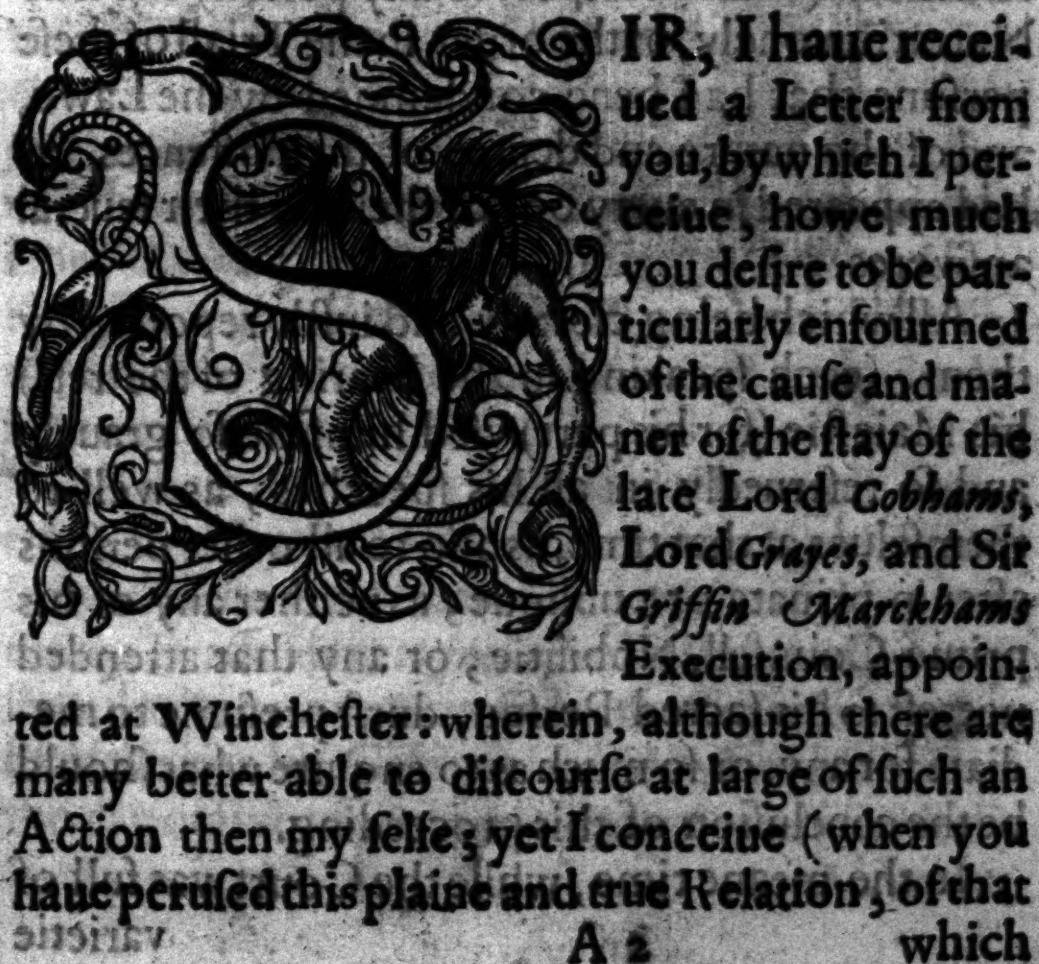 SIR, I haue recei-
ued a Letter from
you, by which I per-
ceiue, howe much
you deſire to be par-
ticularly enfourmed
of the cauſe and ma-
ner of the ſtay of the
late Lord Cobhams,
Lord Grayes, and Sir
Griffin Marckhams
Execution, appoin-
ted at Wincheſter: wherein, although there are
many better able to diſcourſe at large of ſuch an
Action then my ſelfe; yet I conceiue (when you
haue peruſed this plaine and true Relation, of that
A 2 which